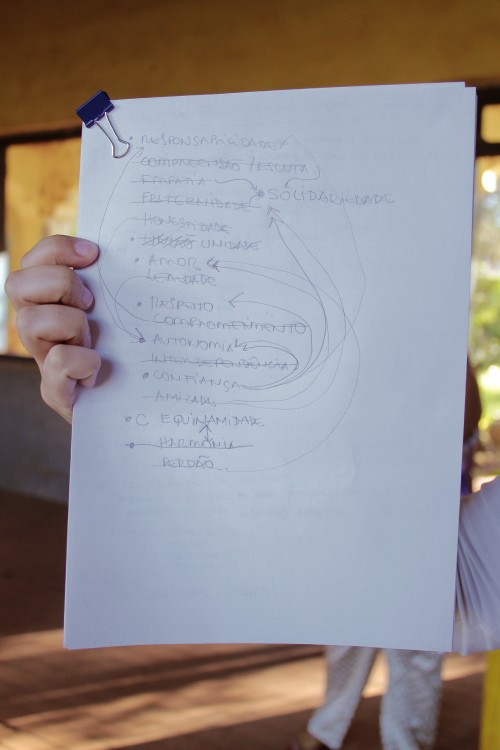 • RESPONSABILIDADE
COMPREENSÃO / ESCUTA
EMPATIA
• SOLIDARIEDADE
FRATERNIDADE
HONESTIDADE
• UNIDADE
• AMOR
LEALDADE
• RESPEITO
COMPROMETIMENTO
• AUTONOMIA
INTERDEPENDÊNCIA
• CONFIANÇA
AMIZADE
• C EQUINAMIDADE
• HARMONIA
PERDÃO